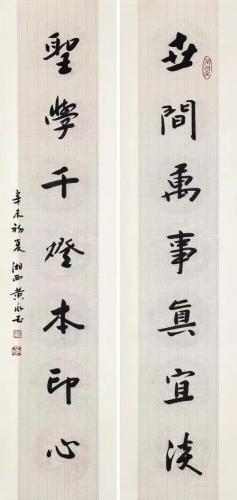 世間萬事真宜淡
聖學千燈本印心
辛未初夏湘西黃永玉